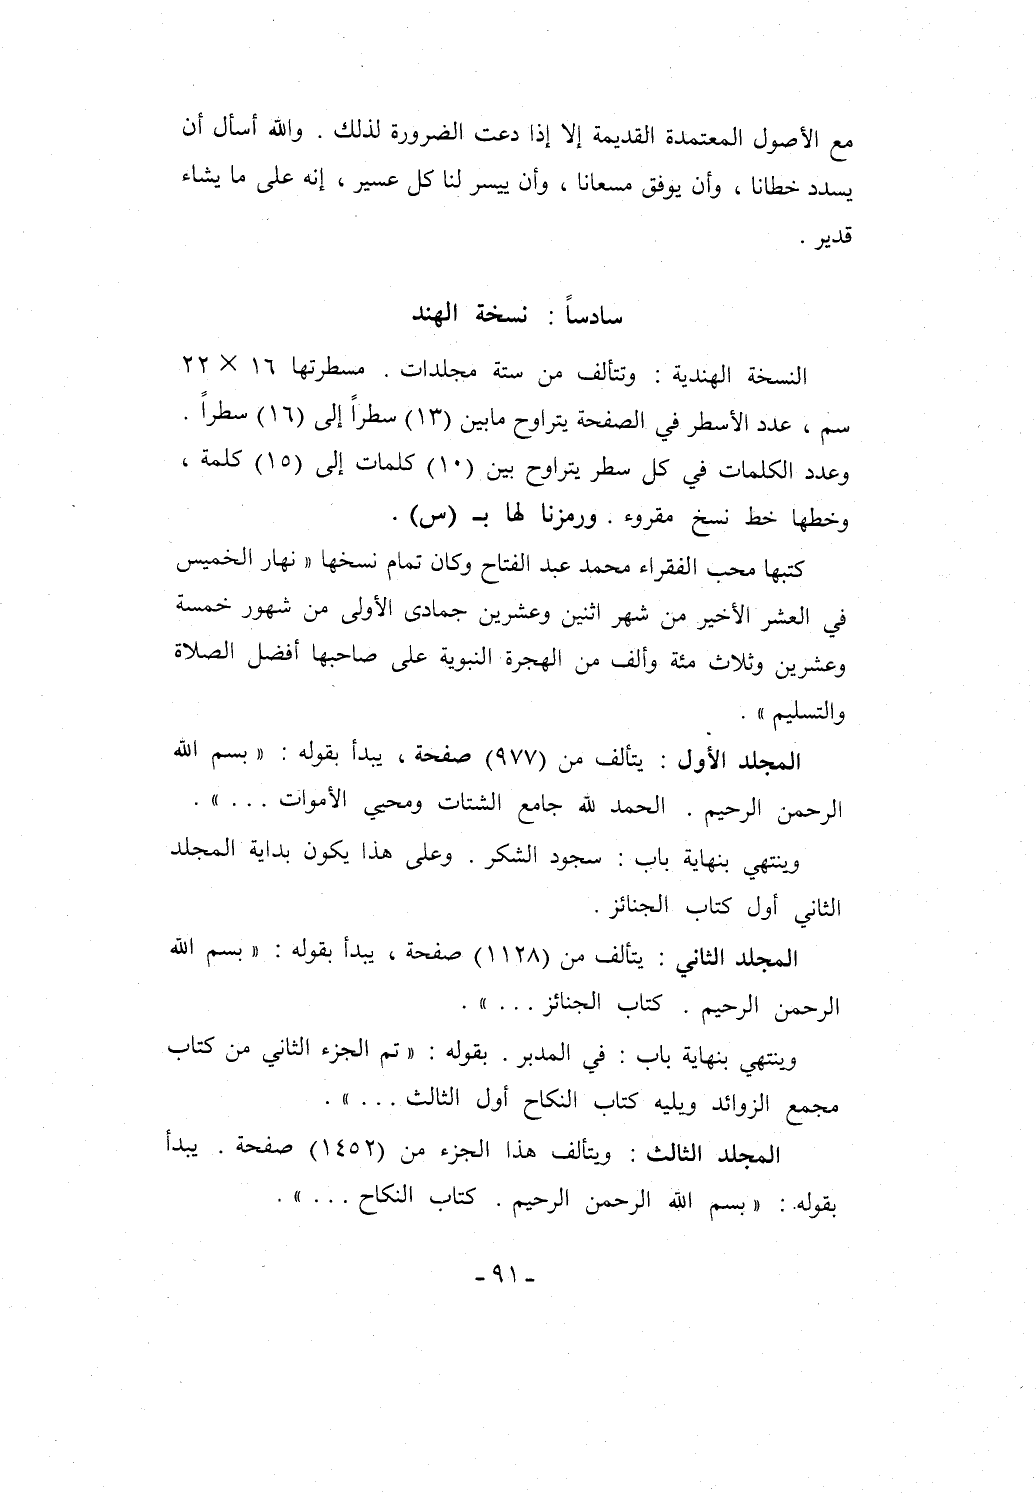 مع الأصول المعتمدة القديمة إلا إذا دعت الضرورة لذلك . والله أسأل أن
يسدد خطانا ، وأن يوفق مسعانا ، وأن ييسر لنا كل عسير ، إنه على ما يشاء
قدير .
سادساً : نسخة الهند
النسخة الهندية : وتتألف من ستة مجلدات . مسطرتها ١٦ × ٢٢
سم ، عدد الأسطر في الصفحة يتراوح مابين (١٣) سطراً إلى (١٦) سطراً .
وعدد الكلمات في كل سطر يتراوح بين (١٠) كلمات إلى (١٥) كلمة ،
وخطها خط نسخ مقروء . ورمزنا لها بـ (س) .
كتبها محب الفقراء محمد عبد الفتاح وكان تمام نسخها « نهار الخميس
في العشر الأخير من شهر اثنين وعشرين جمادى الأولى من شهور خمسة
وعشرين وثلاث مئة وألف من الهجرة النبوية على صاحبها أفضل الصلاة
والتسليم » .
المجلد الأول : يتألف من (٩٧٧) صفحة ، يبدأ بقوله : « بسم الله
الرحمن الرحيم . الحمد لله جامع الشتات ومحيي الأموات ... » .
وينتهي بنهاية باب : سجود الشكر . وعلى هذا يكون بداية المجلد
الثاني أول كتاب الجنائز .
المجلد الثاني : يتألف من (١١٢٨) صفحة ، يبدأ بقوله : « بسم الله
الرحمن الرحيم . كتاب الجنائز ... » .
وينتهي بنهاية باب : في المدبر . بقوله : « تم الجزء الثاني من كتاب
مجمع الزوائد ويليه كتاب النكاح أول الثالث ... » .
المجلد الثالث : ويتألف هذا الجزء من (١٤٥٢) صفحة . يبدأ
بقوله : « بسم الله الرحمن الرحيم . كتاب النكاح ... » .
- ٩١ -